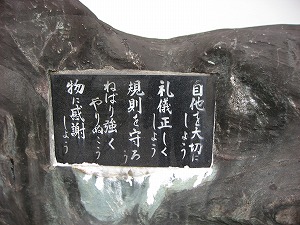 自他を大切にしよう
礼儀正しくしよう
規則を守ろう
ねばり強くやりぬこう
物に感謝しよう